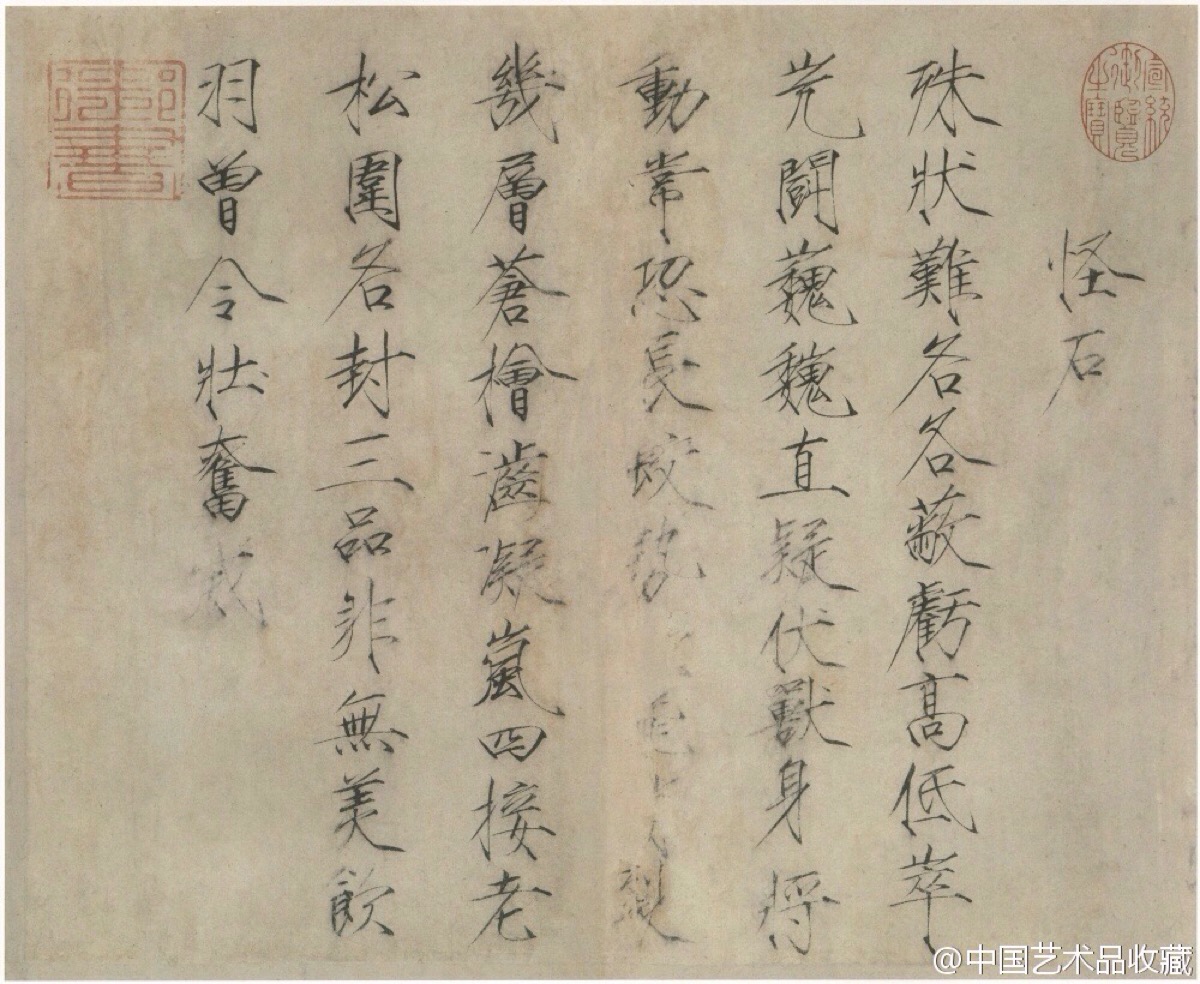 怪石
殊狀難名各蔽虧高低崒
屼鬪巍巍直疑伏獸身將
動常恐長蛟勢
幾層蒼檜凝嵐四接老
松圍名封三品非無美飲
羽曾令壯奮威
宣統御覽之寶
@中国艺术品收藏